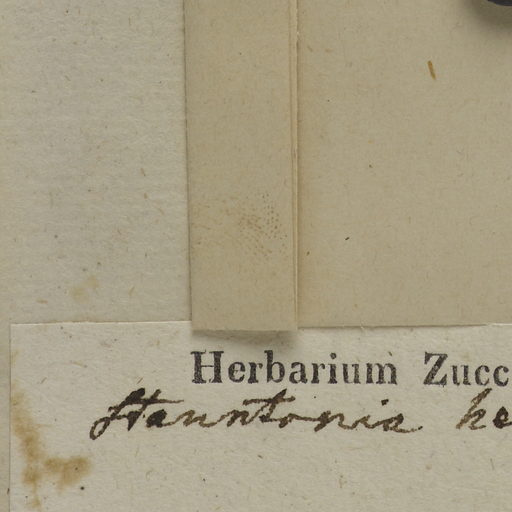 Herbarium Zucc
Stanntonia he